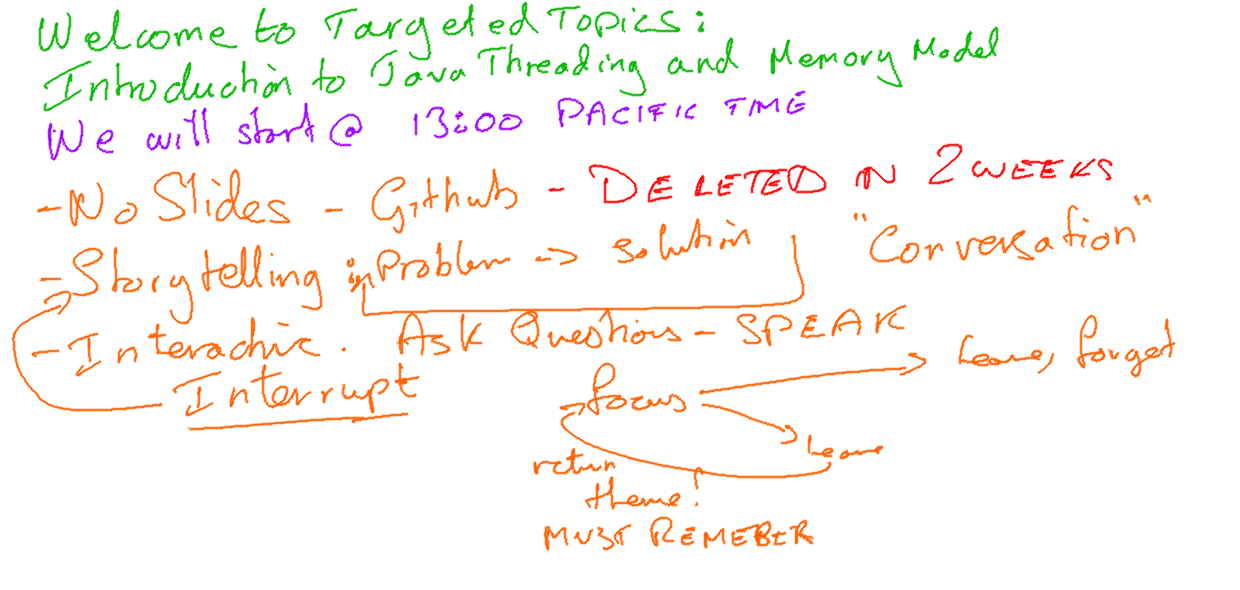 Welcome to Targeted Topics:
Introduction to Java Threading and Memory Model
We will start @ 13:00 PACIFIC TIME
- No Slides - Github - DELETED IN 2 WEEKS
- Storytelling in Problem -> solution "Conversation"
- Interactive. Ask Questions - SPEAK
Interrupt
focus
leave, forget
leave
return
theme!
MUST REMEBER